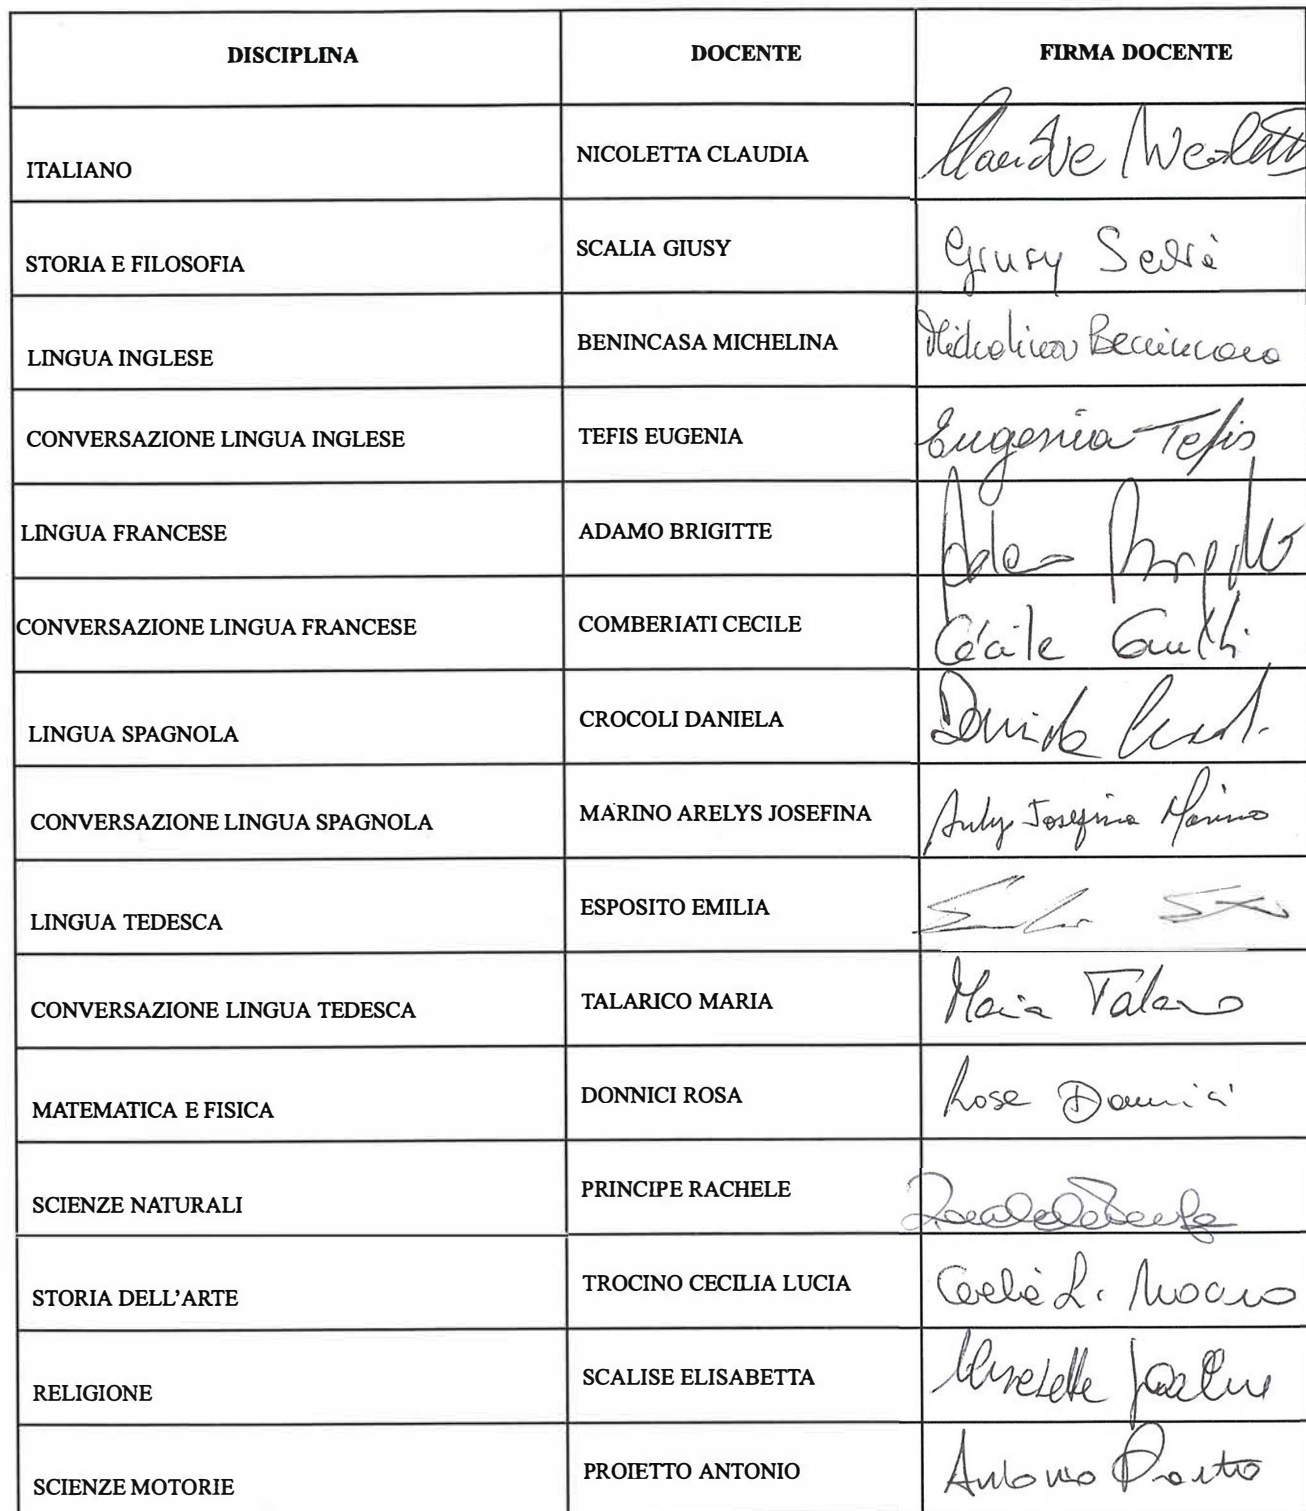 DISCIPLINA DOCENTE FIRMA DOCENTE
ITALIANO NICOLETTA CLAUDIA
STORIA E FILOSOFIA SCALIA GIUSY Giusy Scalia
LINGUA INGLESE BENINCASA MICHELINA Michelina Benincasa
CONVERSAZIONE LINGUA INGLESE TEFIS EUGENIA Eugenia Tefis
LINGUA FRANCESE ADAMO BRIGITTE
CONVERSAZIONE LINGUA FRANCESE COMBERIATI CECILE Cécile
LINGUA SPAGNOLA CROCOLI DANIELA
CONVERSAZIONE LINGUA SPAGNOLA MARINO ARELYS JOSEFINA Josefina Marino
LINGUA TEDESCA ESPOSITO EMILIA
CONVERSAZIONE LINGUA TEDESCA TALARICO MARIA Maria
MATEMATICA E FISICA DONNICI ROSA Rosa Donnici
SCIENZE NATURALI PRINCIPE RACHELE
STORIA DELL'ARTE TROCINO CECILIA LUCIA
RELIGIONE SCALISE ELISABETTA
SCIENZE MOTORIE PROIETTO ANTONIO Antonio